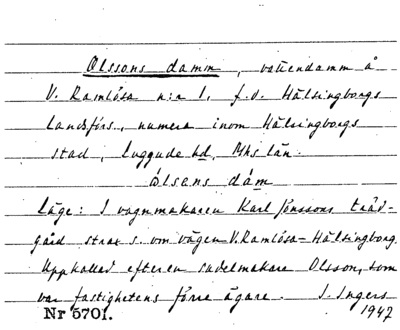 Olssons damm, vattendamm å
V. Ramlösa n:r 1, f.d. Hälsingborgs
landsförs., numera inom Hälsingborgs
stad, Luggude hd, Mhs län.
ólsens dám
Läge: I vagnmakaren Karl Jönssons träd-
gård strax s. om vägen V.Ramlösa–Hälsingborg.
Uppkallad efter en sadelmakare Olsson, som
var fastighetens förre ägare. I. Ingers
Nr 5701. 1947